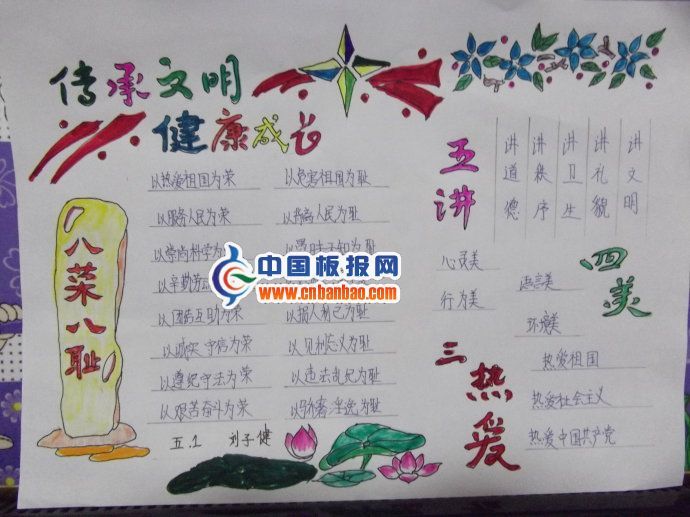 传承文明
健康成长
八荣八耻
以热爱祖国为荣 以危害祖国为耻
以服务人民为荣 以背离人民为耻
以崇尚科学为 以愚昧无知为耻
以辛勤劳动
以团结互助为荣 以损人利己为耻
以诚实守信为荣 以见利忘义为耻
以遵纪守法为荣 以违法乱纪为耻
以艰苦奋斗为荣 以骄奢淫逸为耻
五.1 刘子健
五讲
讲道德
讲秩序
讲卫生
讲礼貌
讲文明
四美
心灵美
语言美
行为美
环境美
三热爱
热爱祖国
热爱社会主义
热爱中国共产党
中国板报网
www.cnbanbao.com